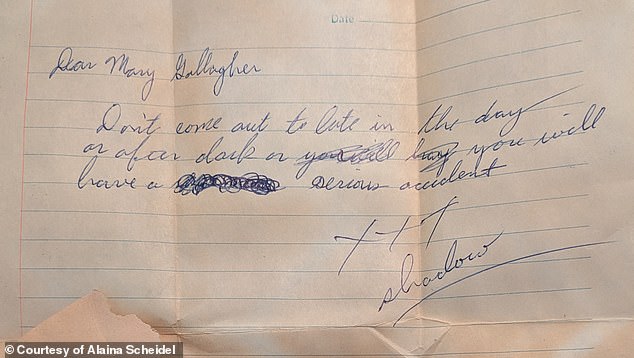 Date
Dear Mary Gallagher
Don't come out to late in the day
or after dark or you will
have a serious accident
+++
shadow
© Courtesy of Alaina Scheidel